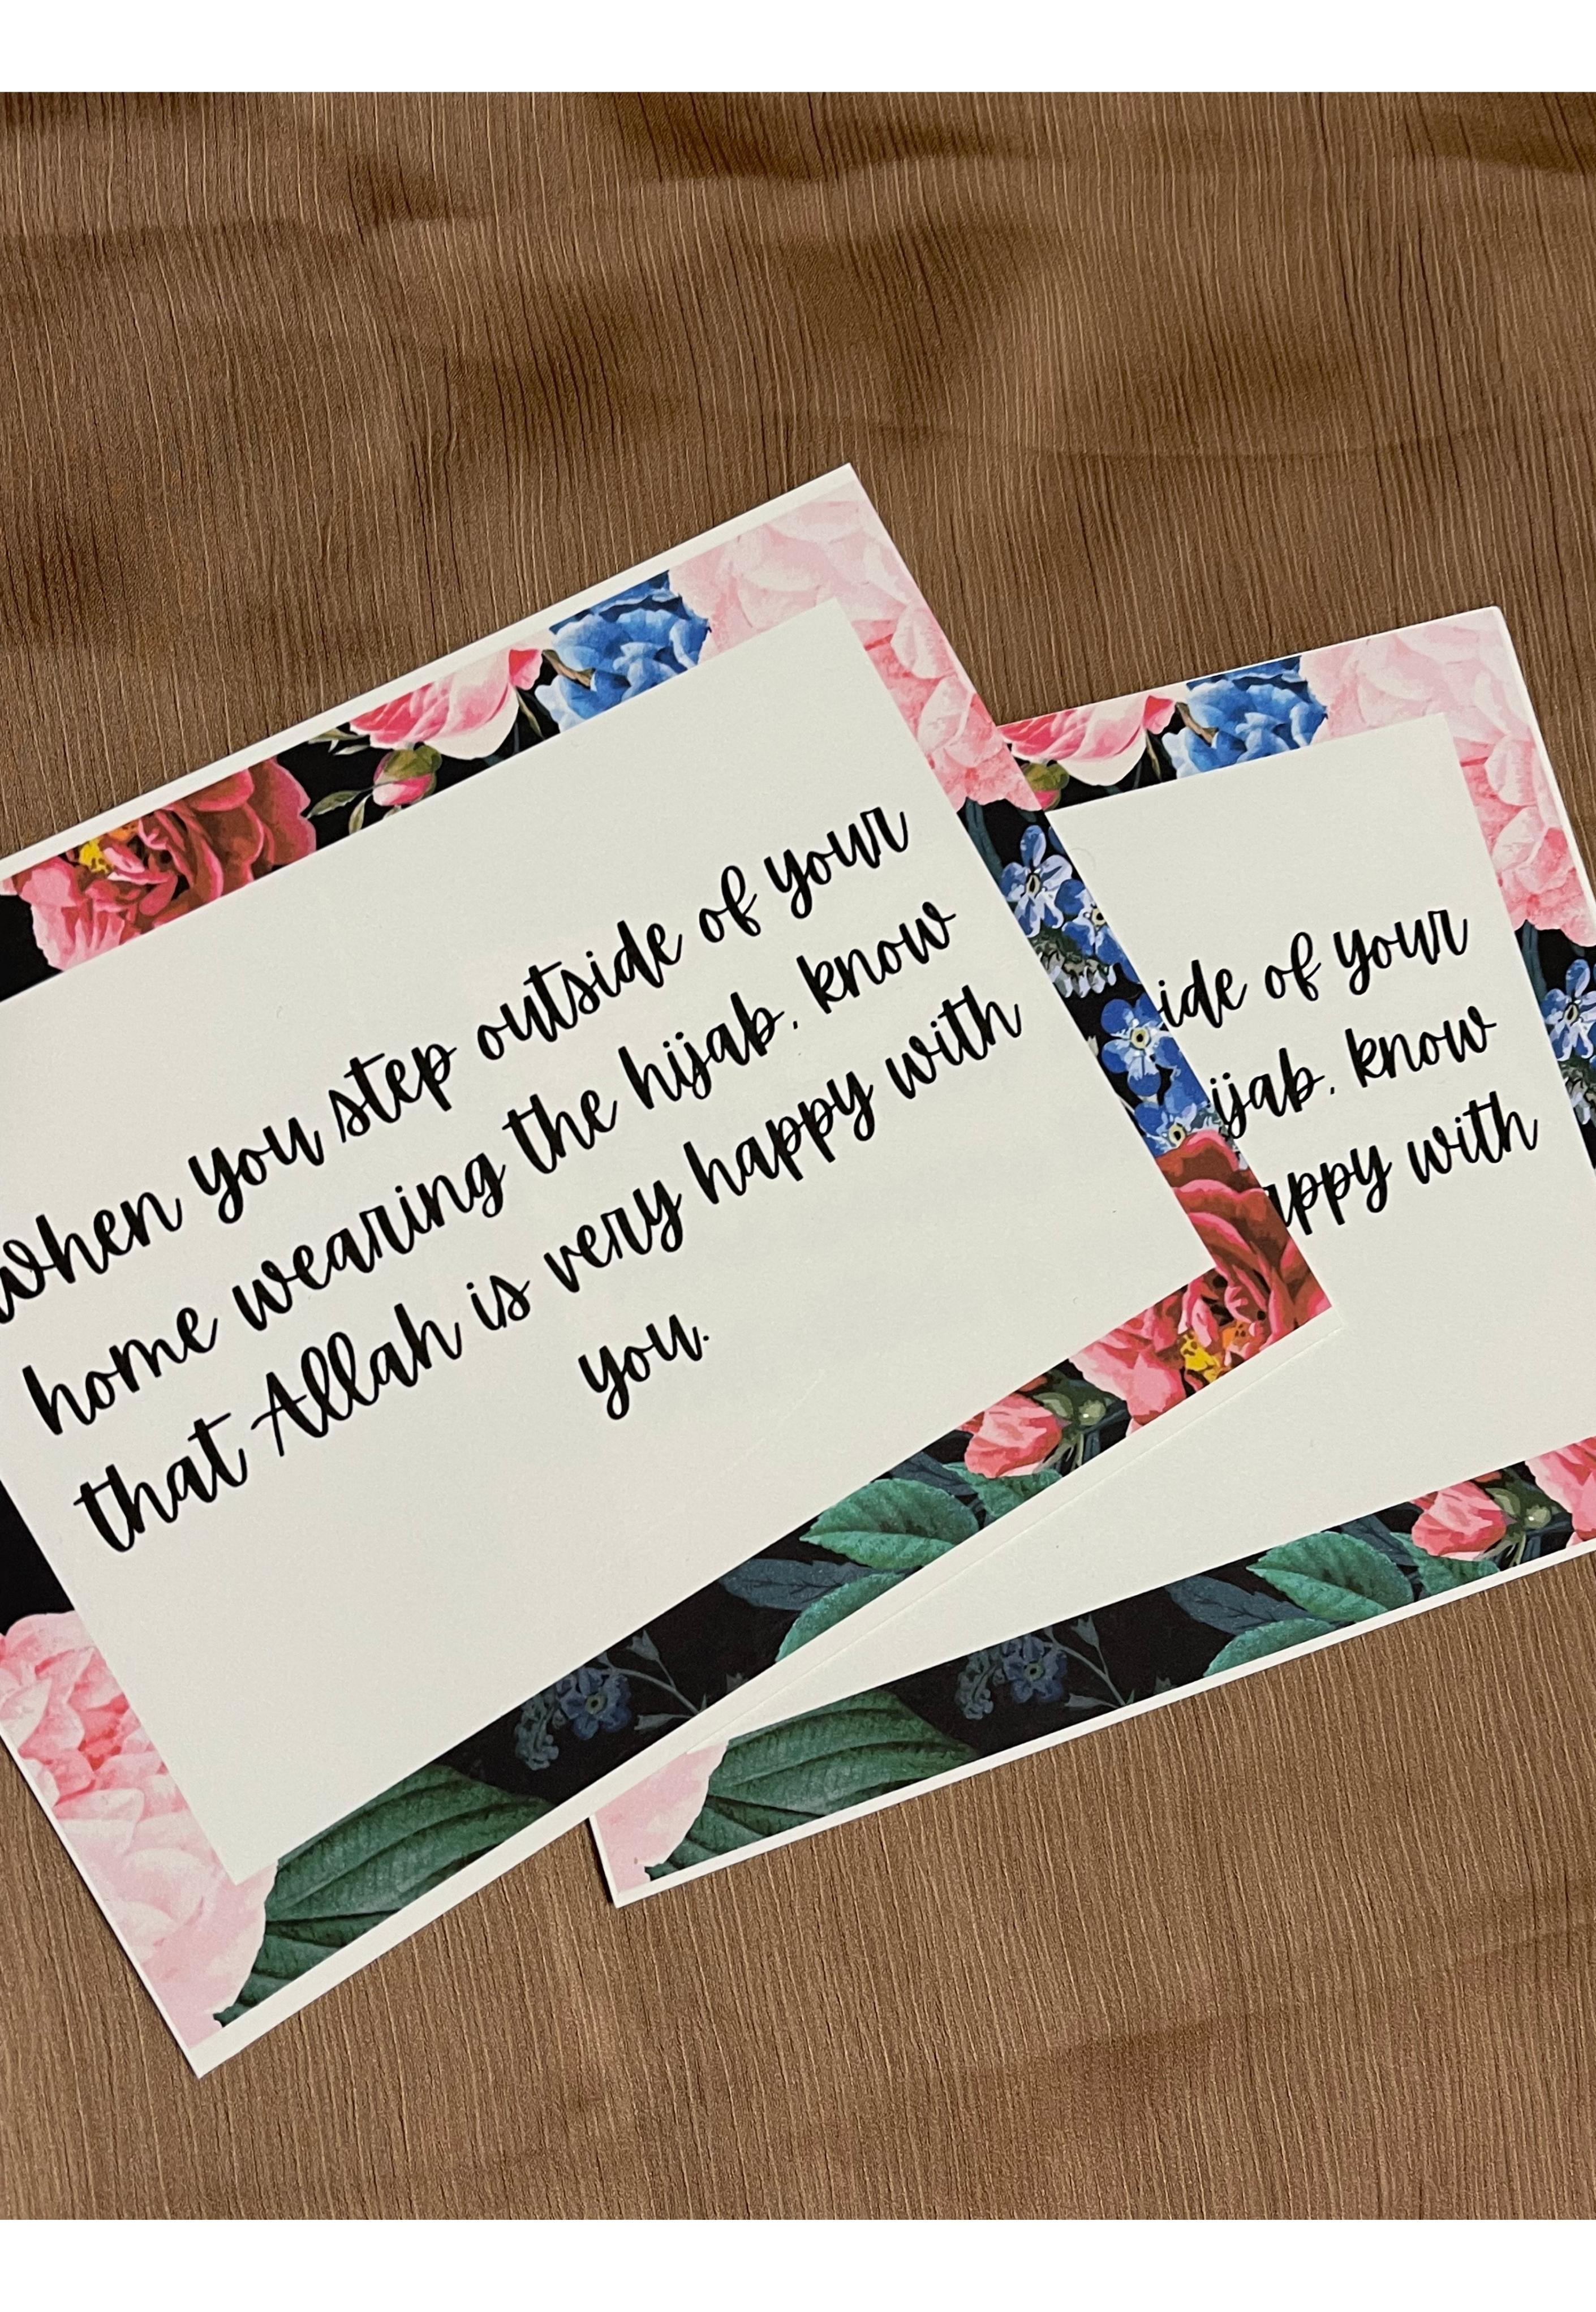 When you step outside of your
home wearing the hijab, know
that Allah is very happy with
you.
ide of your
ijab, know
appy with